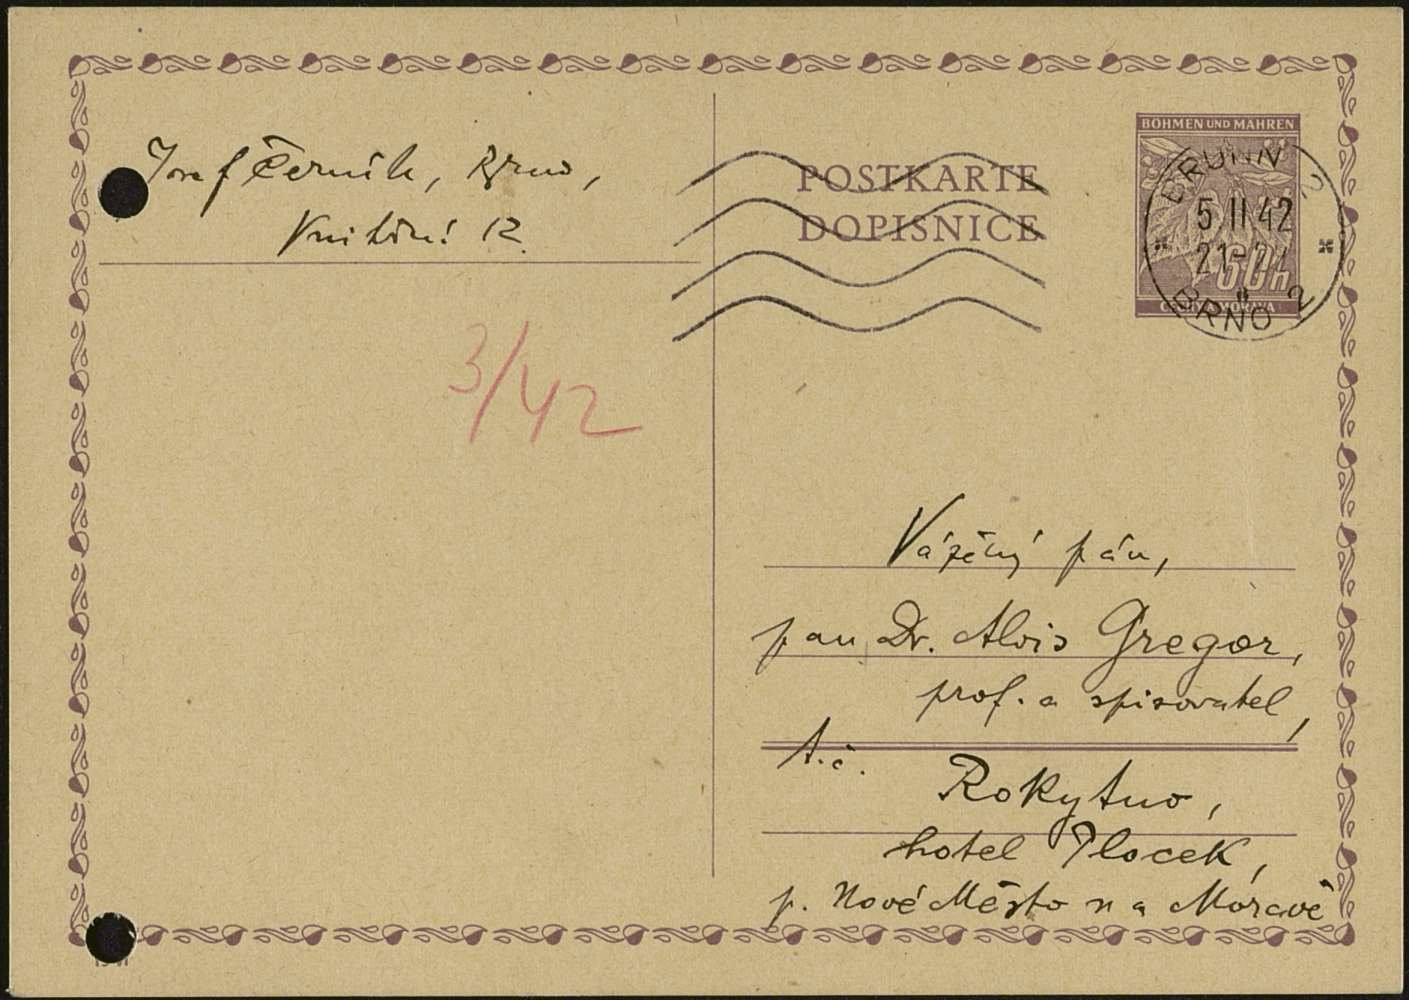 Josef Černík, Brno,
Vniřní 12.
POSTKARTE
DOPISNICE
BÖHMEN UND MÄHREN
60h
BRÜNN 2
5 II 42
21-
BRNO 2
3/42
Vážený pán,
pan Dr. Alois Gregor,
prof. a spisovatel,
t.č.
Rokytno,
hotel Plocek,
p. Nové Město na Moravě